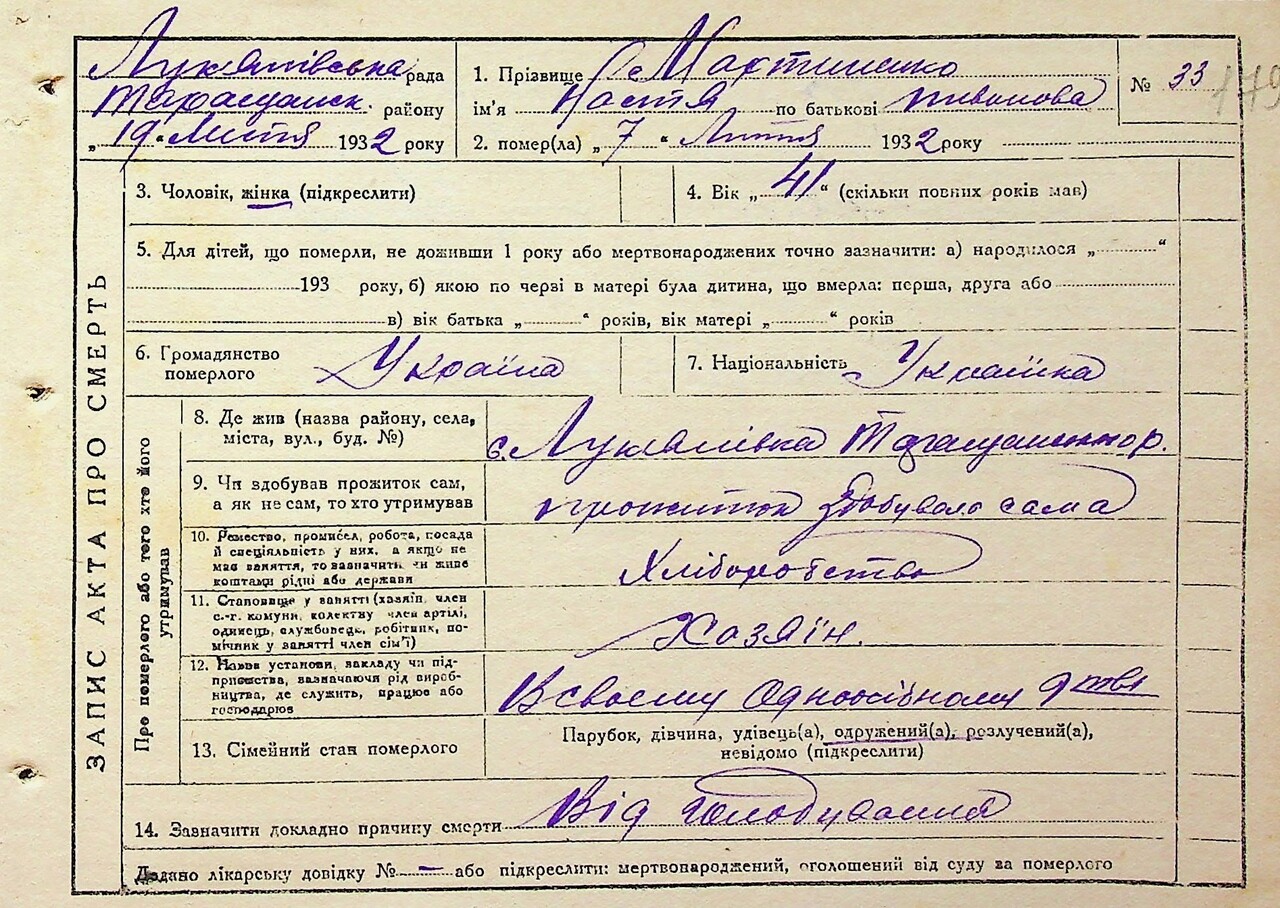 Лук'янівська рада
Таращанск. району
„19“ Лютня 1932 року
1. Прізвище Мартиненко
ім'я Настя по батькові
2. помер(ла) „7“ Лютня 1932 року
№ 33
179
3. Чоловік, жінка (підкреслити)
4. Вік „41“ (скільки повних років мав)
5. Для дітей, що померли, не доживши 1 року або мертвонароджених точно зазначити: а) народилося „ “
193 року, б) якою по черзі в матері була дитина, що вмерла: перша, друга або
в) вік батька „ “ років, вік матері „ “ років
6. Громадянство
померлого
Україна
7. Національність Украйнка
ЗАПИС АКТА ПРО СМЕРТЬ
Про померлого або того хто його
утримував
8. Де жив (назва району, села,
міста, вул., буд. №)
с. Лукянівка р.
9. Чи здобував прожиток сам,
а як не сам, то хто утримував
прожиток здобувала сама
10. Ремество, промисел, робота, посада
й спеціяльність у них, а якщо не
має заняття, то зазначити чи живе
коштами рідні або держави
Хліборобство
11. Становище у занятті (хазяїн, член
с.-г. комуни, колективу член артілі,
одинець, службовець, робітник, по-
мічник у занятті член сім'ї)
Хозяїн.
12. Назва установи, закладу чи під-
приємства, зазначаючи рід вироб-
ництва, де служить, працює або
господарює
В своему Одноосібному
13. Сімейний стан померлого
Парубок, дівчина, удівець(а), одружений(а), розлучений(а),
невідомо (підкреслити)
14. Зазначити докладно причину смерти Від голодування
Додано лікарську довідку № — або підкреслити: мертвонароджений, оголошений від суду за померлого